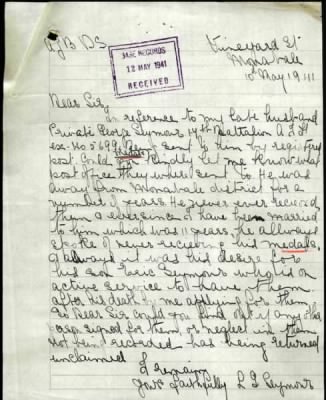 Vineyard St
Monavale
10 May 1941
BASE RECORDS
12 MAY 1941
RECEIVED
Dear Sir,
In reference to my late husband
Private George Seymour 14th Battalion A.I.F
ex-No 5699 sent to him by registered
post. Could you kindly let me know what
post office they where sent to He was
away from Monavale district for a
number of years He never ever recieved
them ever since I have been married
to him which was 11 years, he allways
spoke of never recieving his medals,
& always it was his desire for
his son Eric Seymour who is on
active service to have them
after his death by me applying for them
So Dear Sir could you find out if any other
person signed for them, or neglect in them
not being recorded has being returned
unclaimed
I remain
Yours Faithfully L I Seymour